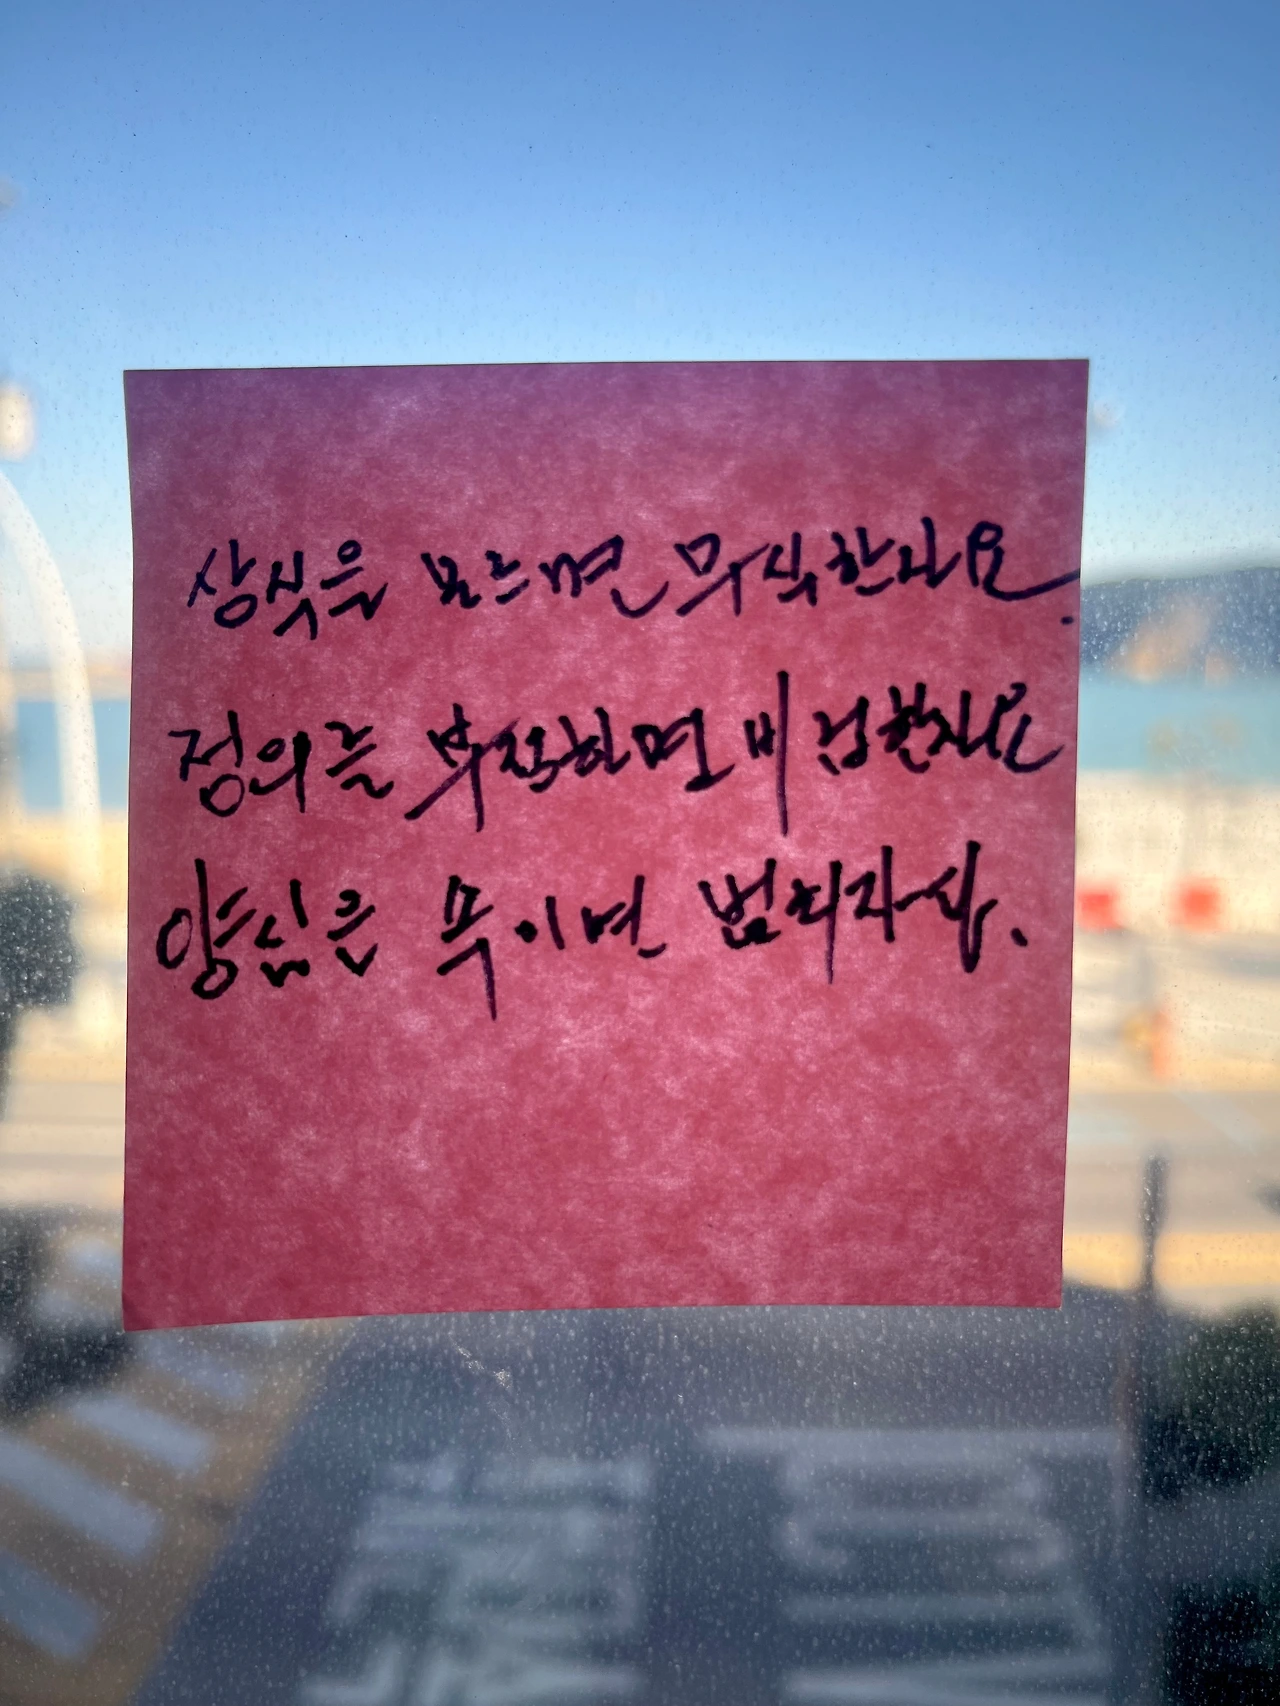 상식을 모르면 무식한자요.
정의를 부정하면 비겁한자요
양심을 속이면 범죄자다.